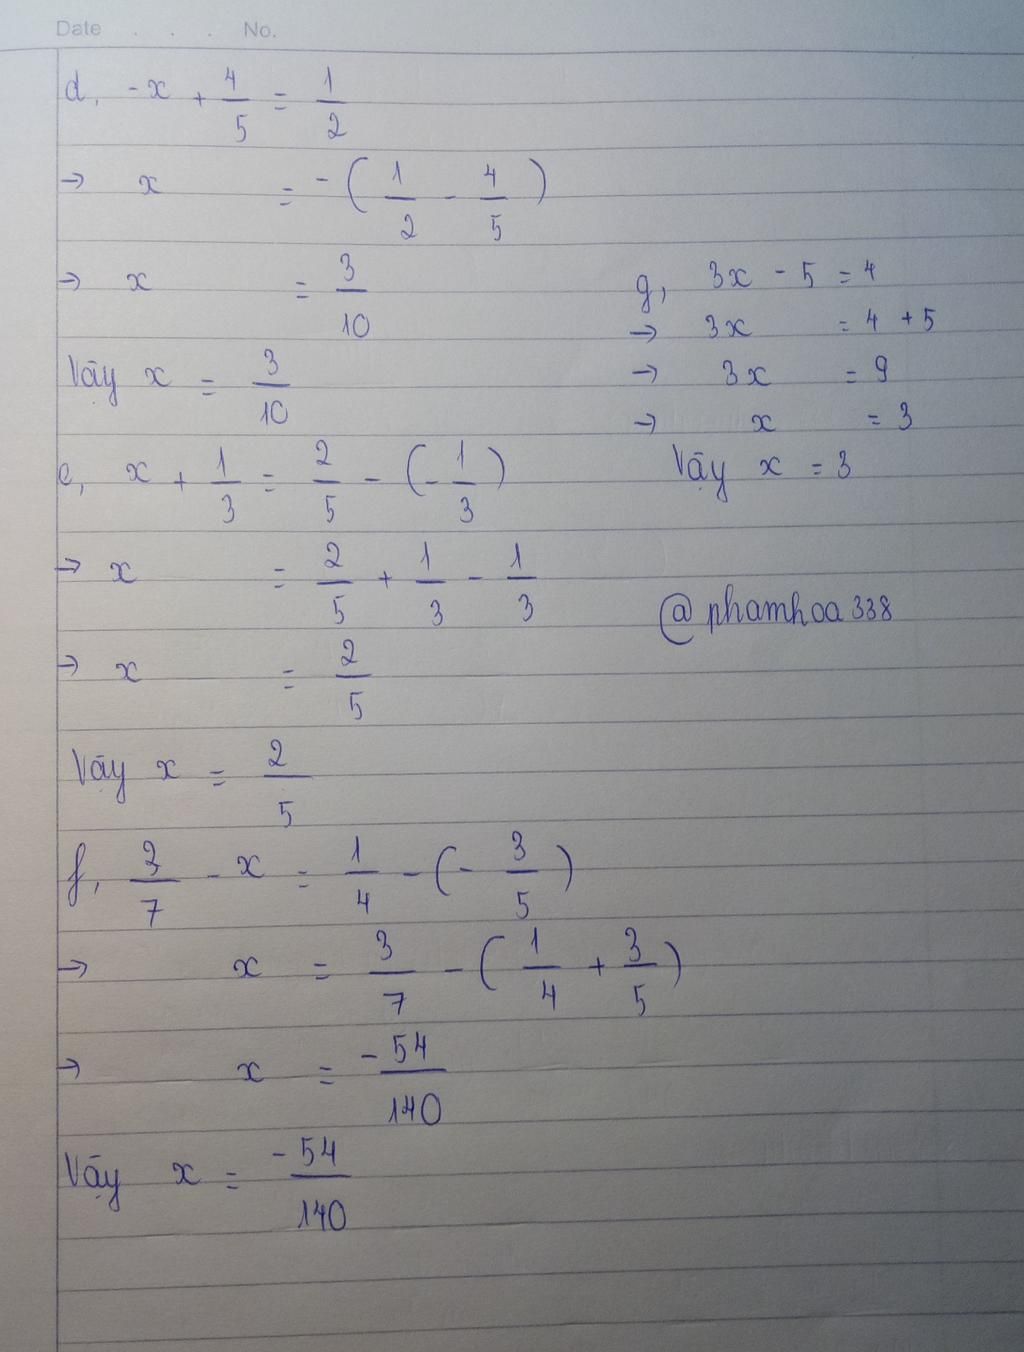 Date . . . No.
d, -x + 4/5 = 1/2
→ x = -(1/2 - 4/5)
→ x = 3/10
Vậy x = 3/10
e, x + 1/3 = 2/5 - (-1/3)
→ x = 2/5 + 1/3 - 1/3
→ x = 2/5
Vậy x = 2/5
f, 3/7 - x = 1/4 - (-3/5)
→ x = 3/7 - (1/4 + 3/5)
→ x = -54/140
Vậy x = -54/140
g, 3x - 5 = 4
→ 3x = 4 + 5
→ 3x = 9
→ x = 3
Vậy x = 3
@phamhoa338